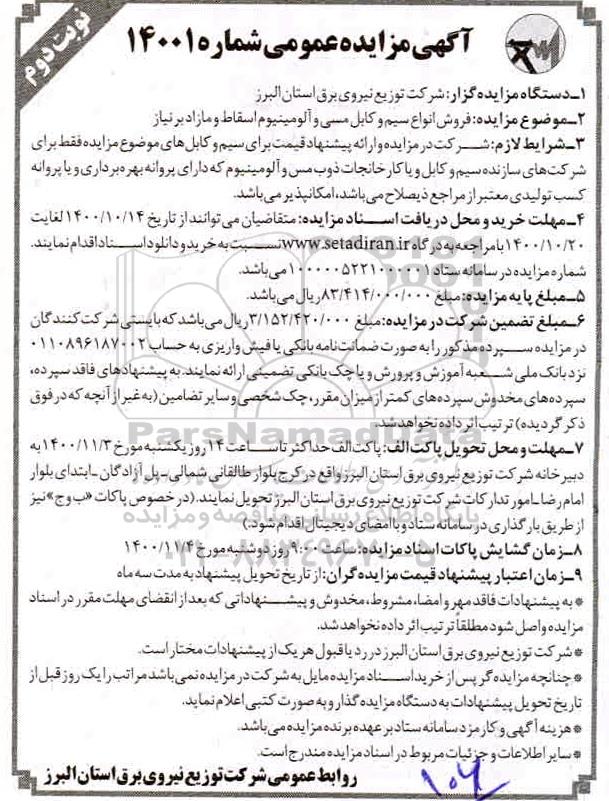 نوبت دوم
آگهی مزایده عمومی شماره ۱۴۰۰۱
۱ـ دستگاه مزایده گزار: شرکت توزیع نیروی برق استان البرز
۲ـ موضوع مزایده: فروش انواع سیم و کابل مسی و آلومینیوم اسقاط و مازاد بر نیاز
۳ـ شرایط لازم: شرکت در مزایده و ارائه پیشنهاد قیمت برای سیم و کابل های موضوع مزایده فقط برای
شرکت های سازنده سیم و کابل و یا کارخانجات ذوب مس و آلومینیوم که دارای پروانه بهره برداری و یا پروانه
کسب تولیدی معتبر از مراجع ذیصلاح می باشد، امکانپذیر می باشد.
۴ـ مهلت خرید و محل دریافت اسناد مزایده: متقاضیان می توانند از تاریخ ۱۴۰۰/۱۰/۱۴ لغایت
۱۴۰۰/۱۰/۲۰ با مراجعه به درگاه www.setadiran.ir نسبت به خرید و دانلود اسناد اقدام نمایند.
شماره مزایده در سامانه ستاد ۱۰۰۰۰۰۵۲۲۱۰۰۰۰۰۱ می باشد.
۵ـ مبلغ پایه مزایده: مبلغ ۸۳/۴۱۴/۰۰۰/۰۰۰ ریال می باشد.
۶ـ مبلغ تضمین شرکت در مزایده: مبلغ ۳/۱۵۲/۴۲۰/۰۰۰ ریال می باشد که بایستی شرکت کنندگان
در مزایده سپرده مذکور را به صورت ضمانت نامه بانکی یا فیش واریزی به حساب ۰۱۱۰۸۹۶۱۸۷۰۰۲
نزد بانک ملی شعبه آموزش و پرورش و یا چک بانکی تضمینی ارائه نمایند. به پیشنهادهای فاقد سپرده،
سپرده های مخدوش سپرده های کمتر از میزان مقرر، چک شخصی و سایر تضامین (به غیر از آنچه که در فوق
ذکر گردیده) ترتیب اثر داده نخواهد شد.
۷ـ مهلت و محل تحویل پاکت الف: پاکت الف حداکثر تا ساعت ۱۴ روز یکشنبه مورخ ۱۴۰۰/۱۱/۳ به
دبیرخانه شرکت توزیع نیروی برق استان البرز واقع در کرج بلوار طالقانی شمالی ـ پل آزادگان ـ ابتدای بلوار
امام رضا ـ امور تدارکات شرکت توزیع نیروی برق استان البرز تحویل نمایند. (در خصوص پاکات «ب و ج» نیز
از طریق بارگذاری در سامانه ستاد و با امضای دیجیتال اقدام شود.)
۸ـ زمان گشایش پاکات اسناد مزایده: ساعت ۹:۰۰ روز دوشنبه مورخ ۱۴۰۰/۱۱/۴
۹ـ زمان اعتبار پیشنهاد قیمت مزایده گران: از تاریخ تحویل پیشنهاد به مدت سه ماه
* به پیشنهادات فاقد مهر و امضا، مشروط، مخدوش و پیشنهاداتی که بعد از انقضای مهلت مقرر در اسناد
مزایده واصل شود مطلقاً ترتیب اثر داده نخواهد شد.
* شرکت توزیع نیروی برق استان البرز در رد یا قبول هر یک از پیشنهادات مختار است.
* چنانچه مزایده گر پس از خرید اسناد مزایده مایل به شرکت در مزایده نمی باشد مراتب را یک روز قبل از
تاریخ تحویل پیشنهادات به دستگاه مزایده گذار و به صورت کتبی اعلام نماید.
* هزینه آگهی و کارمزد سامانه ستاد بر عهده برنده مزایده می باشد.
* سایر اطلاعات و جزئیات مربوط در اسناد مزایده مندرج است.
روابط عمومی شرکت توزیع نیروی برق استان البرز
ParsNamadData
پایگاه اطلاع رسانی مناقصه و مزایده
۰۲۱-۸۸۳۴۹۶۷۰-۵